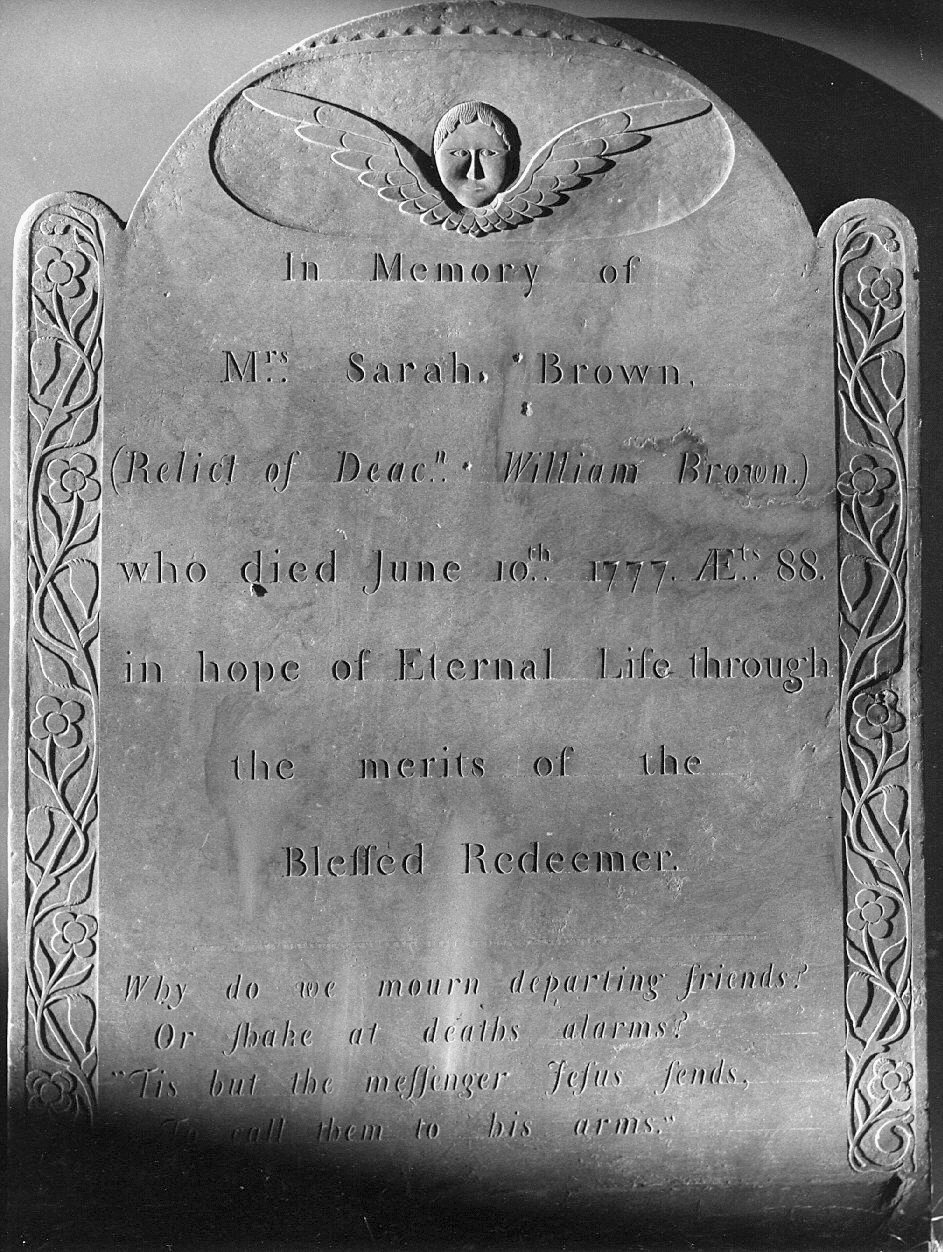 In Memory of
Mrs. Sarah Brown,
(Relict of Deacn. William Brown.)
who died June 10th. 1777. Æts. 88.
in hope of Eternal Life through
the merits of the
Bleſſed Redeemer.
Why do we mourn departing friends?
Or ſhake at deaths alarms?
"Tis but the meſſenger Jeſus ſends,
To call them to his arms."